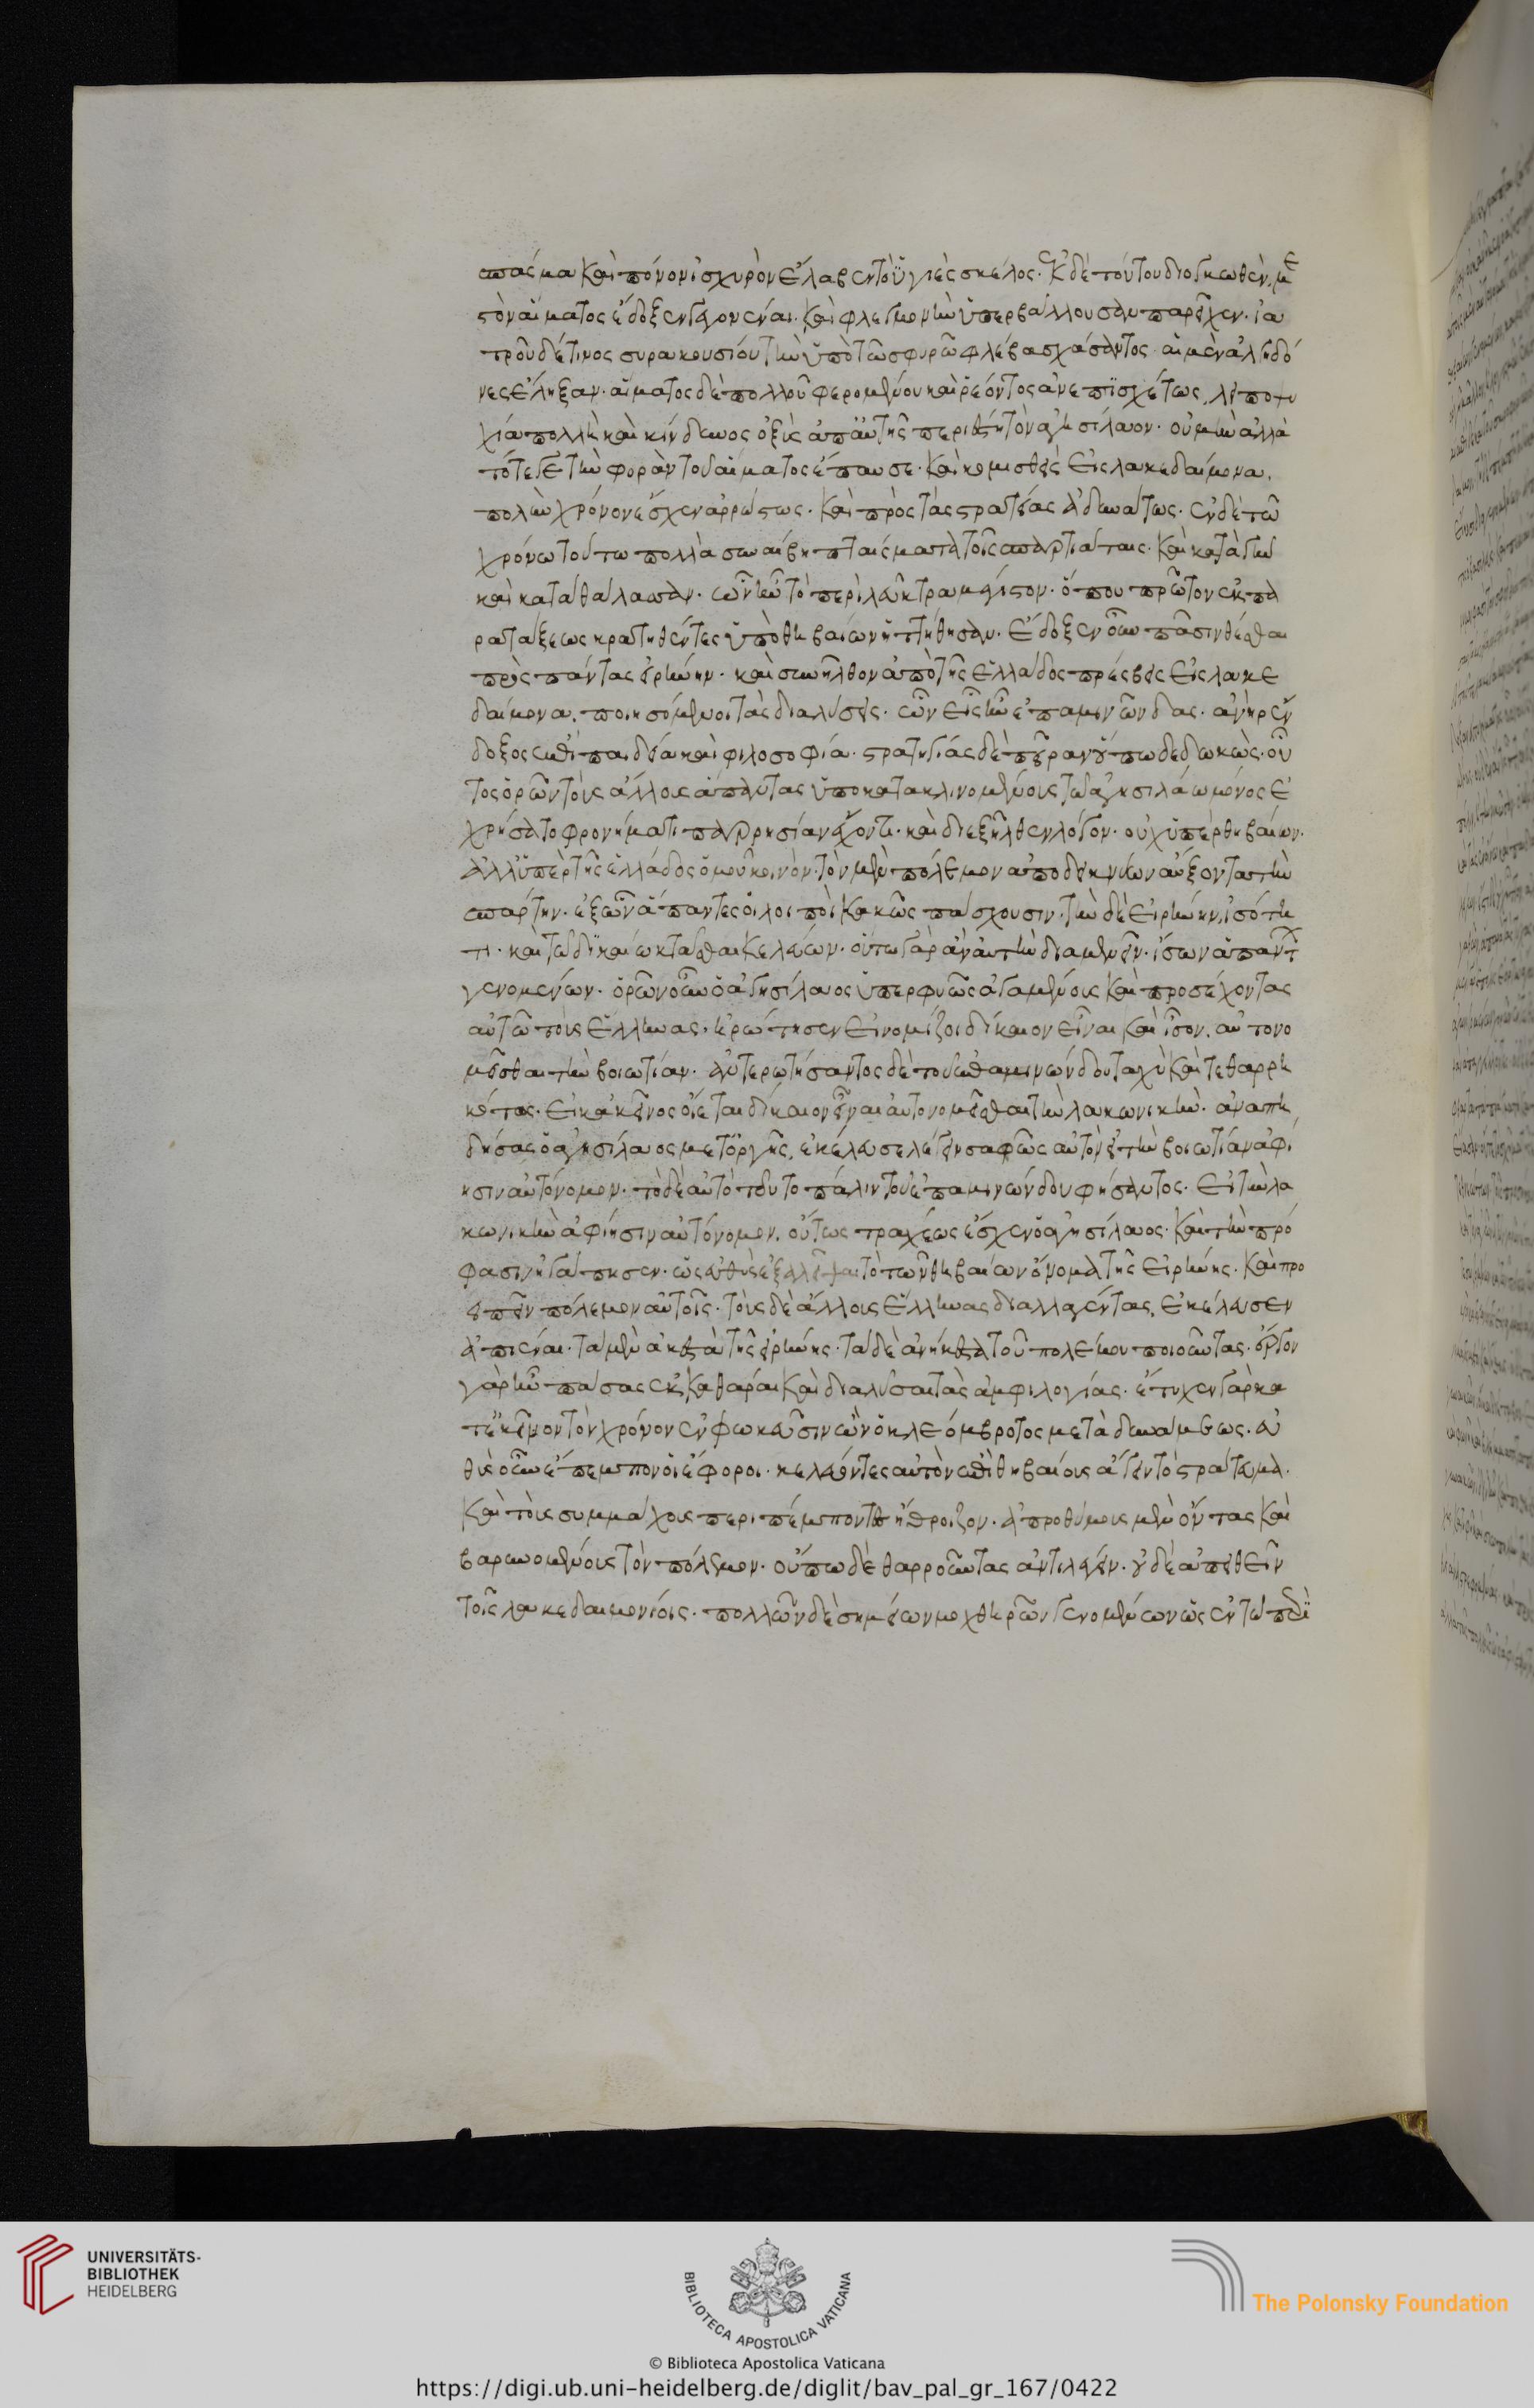 σπάσμα καὶ πόνον ἰσχυρὸν ἔλαβεν τὸ ὑγιὲς σκέλος. ἐκ δὲ τούτου διογκωθὲν, με
στὸν αἵματος ἔδοξεν γεγονέναι. καὶ φλεγμονὴν ὑπερβάλλουσαν παρεῖχεν. ἰα
τροῦ δέ τινος συρακουσίου τὴν ὑπὸ τῶ σφυρῶ φλέβα σχάσαντος. αἱ μὲν ἀλγηδό
νες ἔληξαν. αἵματος δὲ πολλοῦ φερομένου καὶ ῥέοντος ἀνεπισχέτως, λειποψυ
χία πολλὴ καὶ κίνδυνος ὀξὺς ἀπ' αὐτῆς περιέστη τὸν ἀγησίλαον. οὐ μὴν ἀλλὰ
τότε γε τὴν φορὰν τοῦ αἵματος ἔπαυσε. καὶ κομισθεὶς εἰς λακεδαίμονα,
πολὺν χρόνον ἔσχεν ἀρρώστως. καὶ πρὸς τὰς στρατείας ἀδυνάτως. ἐν δὲ τῶ
χρόνω τούτω πολλὰ συνέβη πταίσματα τοῖς σπαρτιάταις. καὶ κατὰ γῆν
καὶ κατὰ θάλασσαν. ὧν ἦν τὸ περὶ λεῦκτρα μέγιστον. ὅπου πρῶτον ἐκ πα
ρατάξεως κρατηθέντες ὑπὸ θηβαίων ἡττήθησαν. ἔδοξεν οὖν πᾶσιν θέσθαι
πρὸς πάντας εἰρήνην. καὶ συνῆλθον ἀπὸ τῆς ἑλλάδος πρέσβεις εἰς λακε
δαίμονα, ποιησόμενοι τὰς διαλύσεις. ὧν εἷς ἦν ἐπαμινώνδας. ἀνὴρ ἔν
δοξος ἐπὶ παιδεία καὶ φιλοσοφία. στρατηγίας δὲ πεῖραν οὔπω δεδωκώς. οὗ
τος ὁρῶν τοὺς ἄλλους ἅπαντας ὑποκατακλινομένους τῶ ἀγησιλάω μόνος ἐ
χρήσατο φρονήματι παρρησίαν ἔχοντι. καὶ διεξῆλθεν λόγον. οὐχ ὑπὲρ θηβαίων.
ἀλλ' ὑπὲρ τῆς ἑλλάδος ὁμοῦ κοινὸν. τὸν μὲν πόλεμον ἀποδεικνύων αὔξοντα τὴν
σπάρτην. ἐξ ὧν ἅπαντες οἱ λοιποὶ κακῶς πάσχουσιν. τὴν δὲ εἰρήνην, ἰσότη
τι. καὶ τῶ δικαίω κτᾶσθαι κελεύων. οὕτω γὰρ ἂν αὐτὴν διαμένειν. ἴσων ἁπάντων
γενομένων. ὁρῶν οὖν ὁ ἀγησίλαος ὑπερφυῶς ἀγαμένους καὶ προσέχοντας
αὐτῶ τοὺς ἕλληνας. ἠρώτησεν εἰ νομίζοι δίκαιον εἶναι καὶ ἴσον. αὐτονο
μεῖσθαι τὴν βοιωτίαν. ἀντερωτήσαντος δὲ τοῦ ἐπαμινώνδου ταχὺ καὶ τεθαρρη
κότως. εἰ κἀκεῖνος οἴεται δίκαιον εἶναι αὐτονομεῖσθαι τὴν λακωνικὴν. ἀναπη
δήσας ὁ ἀγησίλαος μετ' ὀργῆς, ἐκέλευσε λέγειν σαφῶς αὐτὸν εἰ τὴν βοιωτίαν ἀφί
ησιν αὐτόνομον. τὸ δὲ αὐτὸ τοῦτο πάλιν τοῦ ἐπαμινώνδου φήσαντος. εἰ τὴν λα
κωνικὴν ἀφίησιν αὐτόνομον. οὕτως τραχέως ἔσχεν ὁ ἀγησίλαος. καὶ τὴν πρό
φασιν ἠγάπησεν. ὡς εὐθὺς ἐξαλεῖψαι τὸ τῶν θηβαίων ὄνομα τῆς εἰρήνης. καὶ προ
ειπεῖν πόλεμον αὐτοῖς. τοὺς δὲ ἄλλους ἕλληνας διαλλαγέντας, ἐκέλευσεν
ἀπιέναι. τὰ μὲν ἀκεστὰ τῆς εἰρήνης. τὰ δὲ ἀνήκεστα τοῦ πολέμου ποιοῦντας. ἔργον
γὰρ ἦν πάσας ἐκκαθάραι καὶ διαλύσαι τὰς ἀμφιλογίας. ἔτυχεν γὰρ κα
τ' ἐκεῖνον τὸν χρόνον ἐν φωκεῦσιν ὢν ὁ κλεόμβροτος μετὰ δυνάμεως. εὐ
θὺς οὖν ἔπεμπον οἱ ἔφοροι. κελεύοντες αὐτὸν ἐπὶ θηβαίους ἄγειν τὸ στράτευμα.
καὶ τοὺς συμμάχους περιπέμποντες ἤθροιζον. ἀπροθύμους μὲν ὄντας καὶ
βαρυνομένους τὸν πόλεμον. οὔπω δὲ θαρροῦντας ἀντιλέγειν. οὐδὲ ἀπειθεῖν
τοῖς λακεδαιμονίοις. πολλῶν δὲ σημείων μοχθηρῶν γενομένων ὡς ἐν τῶ περὶ
UNIVERSITÄTS-
BIBLIOTHEK
HEIDELBERG
BIBLIOTECA APOSTOLICA VATICANA
The Polonsky Foundation
© Biblioteca Apostolica Vaticana
https://digi.ub.uni-heidelberg.de/diglit/bav_pal_gr_167/0422